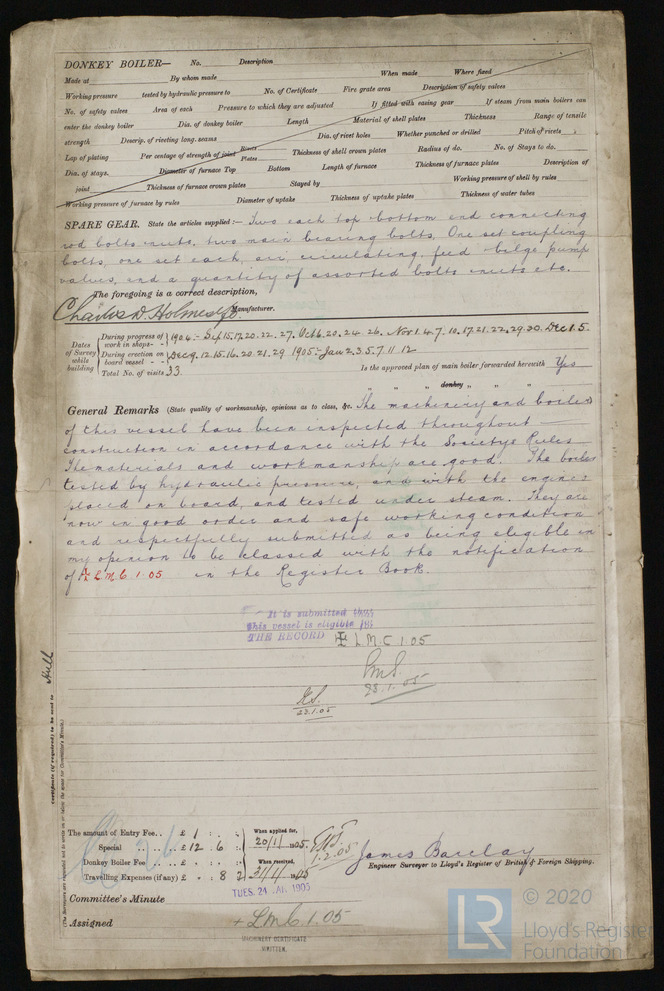 DONKEY BOILER— No. Description
Made at By whom made When made Where fixed
Working pressure tested by hydraulic pressure to No. of Certificate Fire grate area Description of safety valves
No. of safety valves Area of each Pressure to which they are adjusted If fitted with easing gear If steam from main boilers can
enter the donkey boiler Dia. of donkey boiler Length Material of shell plates Thickness Range of tensile
strength Descrip. of riveting long. seams Dia. of rivet holes Whether punched or drilled Pitch of rivets
Lap of plating Per centage of strength of joint Rivets Plates Thickness of shell crown plates Radius of do. No. of Stays to do.
Dia. of stays. Diameter of furnace Top Bottom Length of furnace Thickness of furnace plates Description of
joint Thickness of furnace crown plates Stayed by Working pressure of shell by rules
Working pressure of furnace by rules Diameter of uptake Thickness of uptake plates Thickness of water tubes
SPARE GEAR. State the articles supplied:— Two each top bottom end connecting
rod bolts & nuts, two main bearing bolts, One set coupling
bolts, one set each, air, circulating, feed bilge pump
valves, and a quantity of assorted bolts nuts etc.
The foregoing is a correct description,
Charles D. Holmes & Co. Manufacturer.
Dates of Survey while building
During progress of work in shops - - 1904:- Sep 15. 17. 20. 22. 27. Oct 6. 20. 24. 26. Nov 1. 4. 7. 10. 17. 21. 22. 29. 30. Dec 1. 5.
During erection on board vessel - - Dec 9. 12. 15. 16. 20. 21. 29 1905:- Jan 2. 3. 5. 7. 11 12
Total No. of visits 33 Is the approved plan of main boiler forwarded herewith Yes
" " " donkey " " "
General Remarks (State quality of workmanship, opinions as to class, &c. The machinery and boiler
of this vessel have been inspected throughout
construction in accordance with the Societys Rules
The materials and workmanship are good. The boiler
tested by hydraulic pressure, and with the engines
placed on board, and tested under steam. They are
now in good order and safe working condition
and respectfully submitted as being eligible in
my opinion to be classed with the notification
of + LMC 1.05 in the Register Book.
It is submitted that
this vessel is eligible for
THE RECORD + LMC 1.05
23.1.05
23.1.05
Certificate (if required) to be sent to Hull
(The Surveyors are requested not to write on or below the space for Committee's Minute.)
The amount of Entry Fee . . £ 1 : : When applied for,
Special . . . . £ 12 . 6 : 20/1/1905
Donkey Boiler Fee . . . £ : : When received,
Travelling Expenses (if any) £ : 8 2 31/1/1905
1.2.05
James Barclay
Engineer Surveyor to Lloyd's Register of British & Foreign Shipping.
Committee's Minute TUES. 24 JAN 1905
Assigned + LMC 1.05
MACHINERY CERTIFICATE
WRITTEN.
LR
© 2020
Lloyd's Register
Foundation